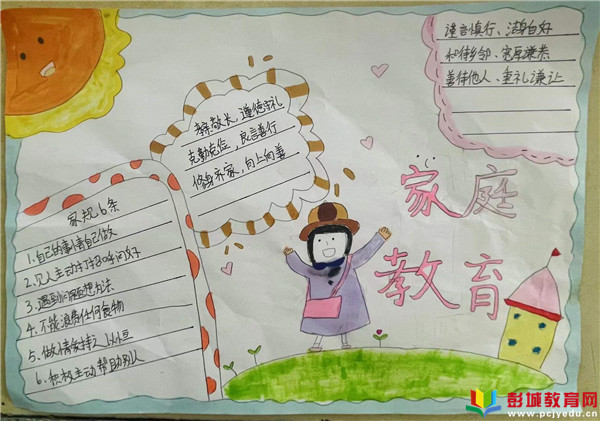 谨言慎行、洁身自好
和待乡邻、宽厚谦恭
善待他人、重礼谦让
孝亲敬长，遵德守礼
克勤克俭，良言善行
修身齐家，向上向善
家庭
教育
家规6条
1.自己的事情自己做
2.见人主动打招呼问好
3.遇到问题想办法
4.不能浪费任何食物
5.做事情要持之以恒
6.积极主动帮助别人
彭城教育网
www.pcjyedu.cn